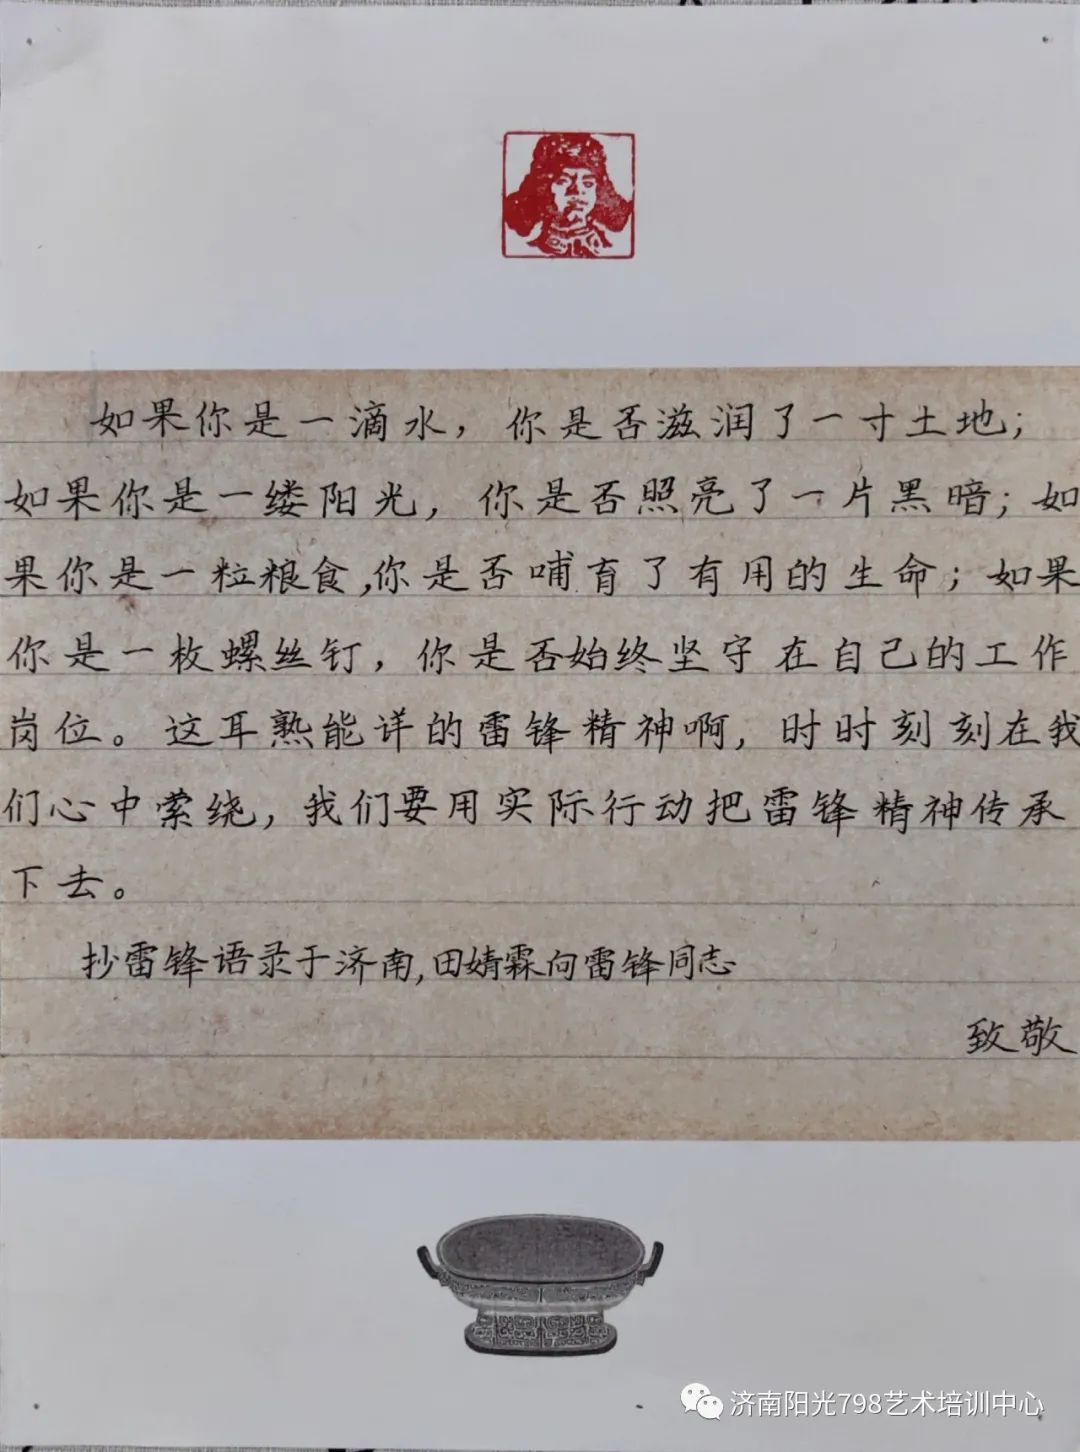 如果你是一滴水，你是否滋润了一寸土地；
如果你是一缕阳光，你是否照亮了一片黑暗；如
果你是一粒粮食，你是否哺育了有用的生命；如果
你是一枚螺丝钉，你是否始终坚守在自己的工作
岗位。这耳熟能详的雷锋精神啊，时时刻刻在我
们心中萦绕，我们要用实际行动把雷锋精神传承
下去。
抄雷锋语录于济南，田婧霖向雷锋同志
致敬
济南阳光798艺术培训中心